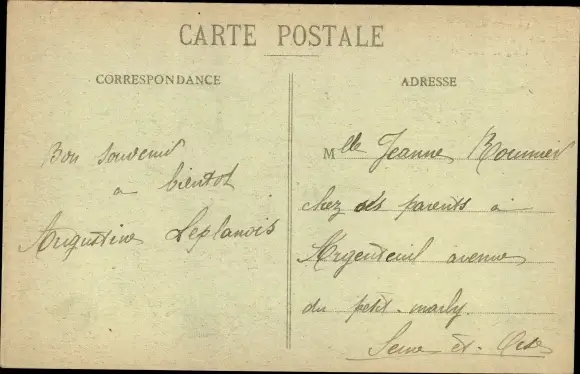 CARTE POSTALE
CORRESPONDANCE
Bon souvenir
a bientot
Augustine Leplanois
ADRESSE
Mlle Jeanne
chez ses parents a
Argenteuil avenue
du petit-marly
Seine et-Oise